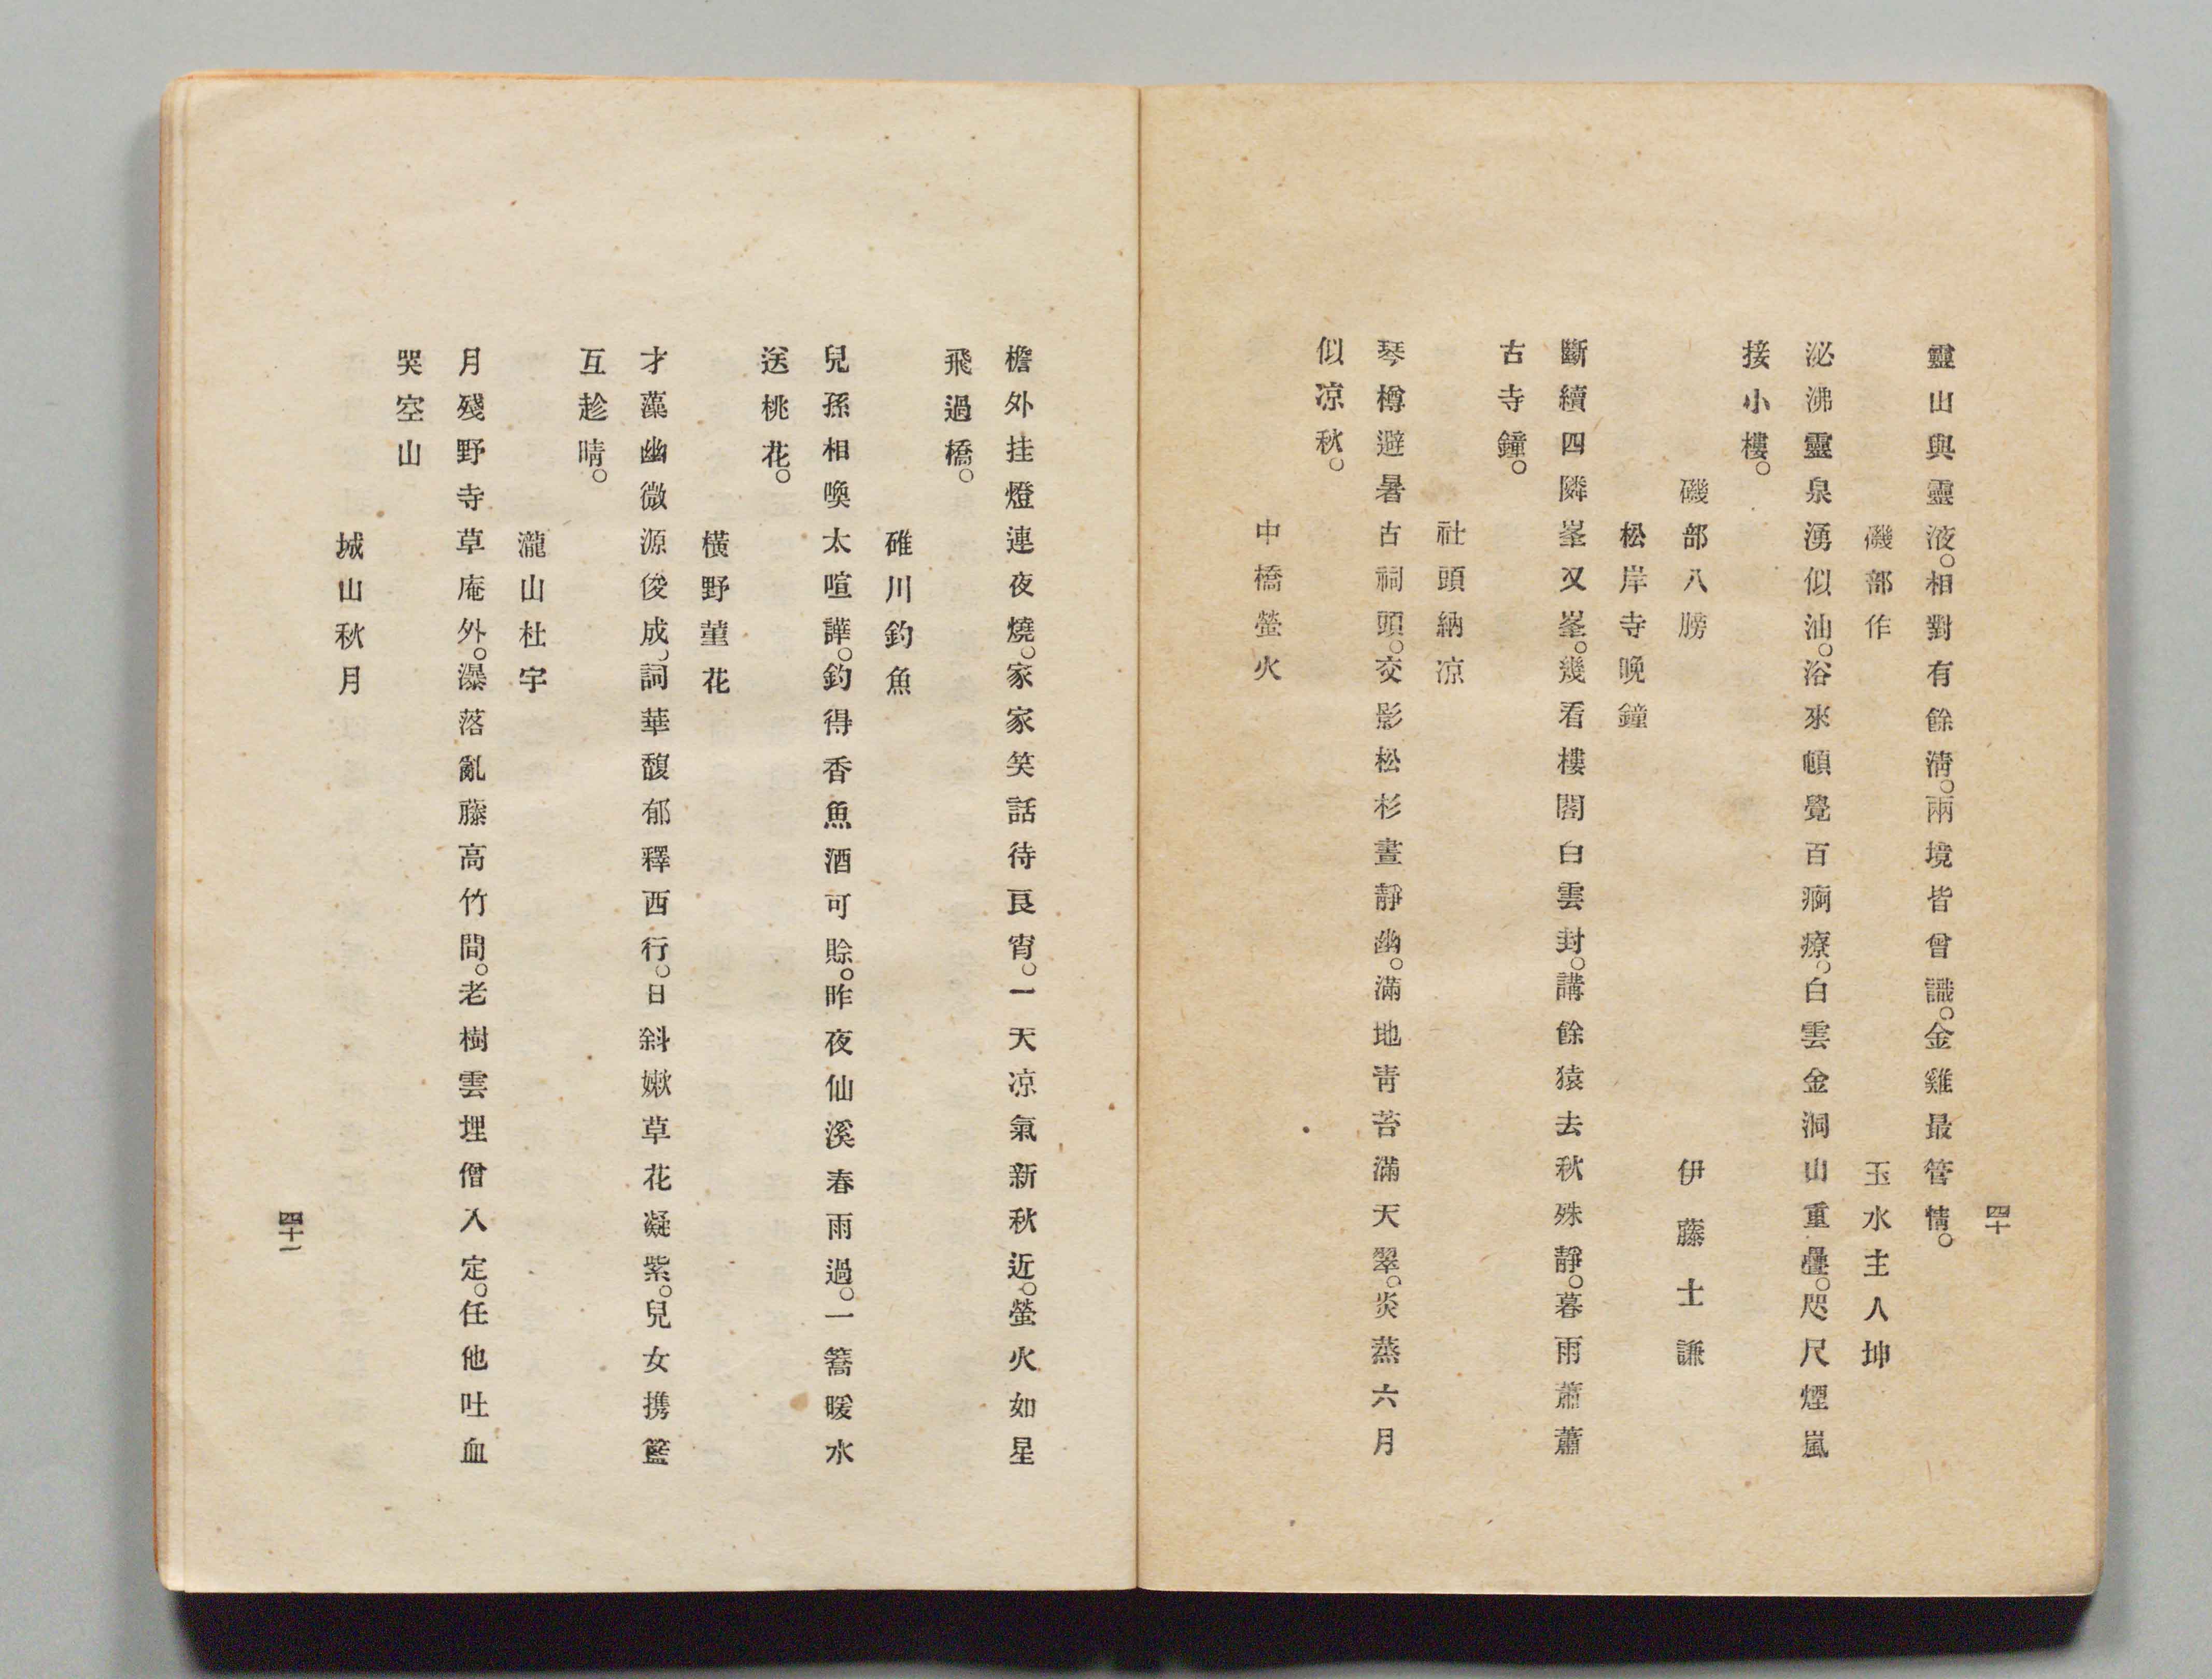 四十
靈山與靈液。相對有餘淸。兩境皆曾識。金雞最管情。
磯部作　玉水主人坤
泌沸靈泉湧似油。浴來頓覺百痾療。白雲金洞山重疊。咫尺煙嵐
接小樓。
磯部八勝　伊藤士謙
松岸寺晚鐘
斷續四隣峯又峯。幾看樓閣白雲封。講餘猿去秋殊靜。暮雨蕭蕭
古寺鐘。
社頭納凉
琴樽避暑古祠頭。交影松杉晝靜幽。滿地靑苔滿天翠。炎蒸六月
似凉秋。
中橋螢火
檐外挂燈連夜燒。家家笑話待良宵。一天凉氣新秋近。螢火如星
飛過橋。
碓川釣魚
兒孫相喚太喧譁。釣得香魚酒可賒。昨夜仙溪春雨過。一篙暖水
送桃花。
橫野菫花
才藻幽微源俊成、詞華馥郁釋西行。日斜嫩草花凝紫。兒女携籃
互趁晴。
瀧山杜宇
月殘野寺草庵外。瀑落亂藤高竹間。老樹雲埋僧入定。任他吐血
哭空山
城山秋月
四十一